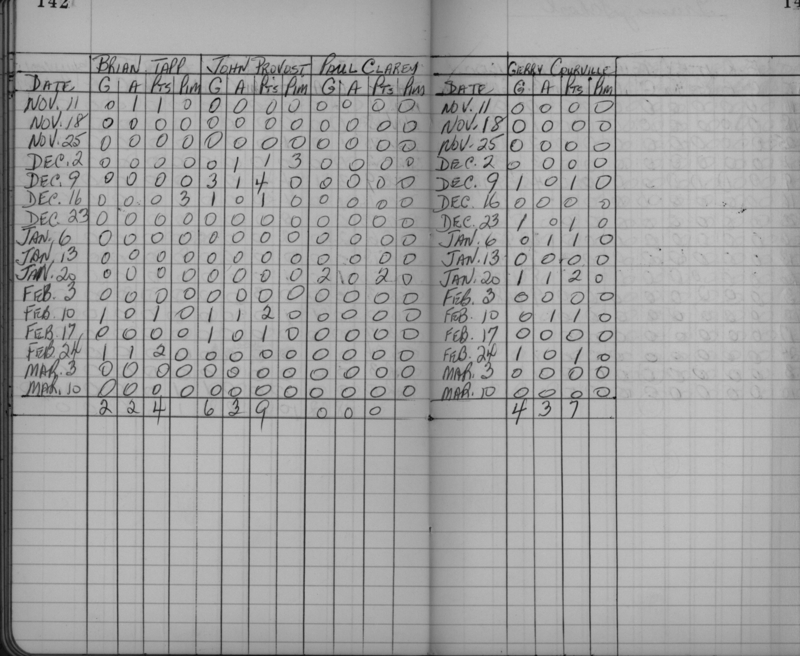 142
14
BRIAN TAPP JOHN PROVOST PAUL CLAREY
DATE G A PTS PIM G A PTS PIM G A PTS PIM
NOV. 11 0 1 1 0 0 0 0 0 0 0 0 0
NOV. 18 0 0 0 0 0 0 0 0 0 0 0 0
NOV. 25 0 0 0 0 0 0 0 0 0 0 0 0
DEC. 2 0 0 0 0 0 1 1 3 0 0 0 0
DEC. 9 0 0 0 0 3 1 4 0 0 0 0 0
DEC. 16 0 0 0 3 1 0 1 0 0 0 0 0
DEC. 23 0 0 0 0 0 0 0 0 0 0 0 0
JAN. 6 0 0 0 0 0 0 0 0 0 0 0 0
JAN. 13 0 0 0 0 0 0 0 0 0 0 0 0
JAN. 20 0 0 0 0 0 0 0 0 2 0 2 0
FEB. 3 0 0 0 0 0 0 0 0 0 0 0 0
FEB. 10 1 0 1 0 1 1 2 0 0 0 0 0
FEB 17 0 0 0 0 1 0 1 0 0 0 0 0
FEB. 24 1 1 2 0 0 0 0 0 0 0 0 0
MAR. 3 0 0 0 0 0 0 0 0 0 0 0 0
MAR. 10 0 0 0 0 0 0 0 0 0 0 0 0
2 2 4 6 3 9 0 0 0
GERRY COURVILLE
DATE G A PTS PIM
NOV. 11 0 0 0 0
NOV. 18 0 0 0 0
NOV. 25 0 0 0 0
DEC. 2 0 0 0 0
DEC. 9 1 0 1 0
DEC. 16 0 0 0 0
DEC. 23 1 0 1 0
JAN. 6 0 1 1 0
JAN. 13 0 0 0 0
JAN. 20 1 1 2 0
FEB. 3 0 0 0 0
FEB. 10 0 1 1 0
FEB. 17 0 0 0 0
FEB. 24 1 0 1 0
MAR. 3 0 0 0 0
MAR. 10 0 0 0 0
4 3 7